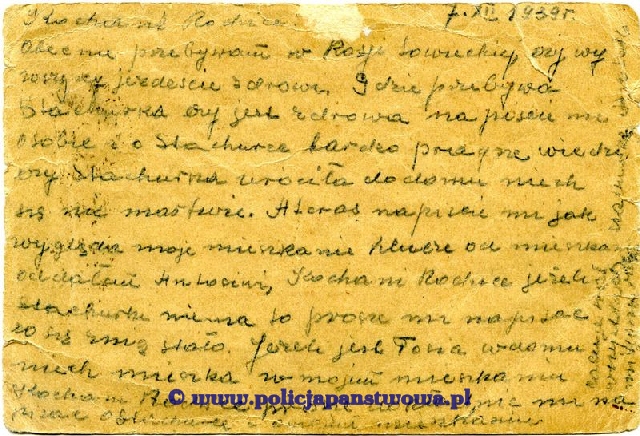 Kochani Rodzice. 7.XII 1939r.
Obecnie przebywam w Rosji Sowieckiej, czy wy
wszyscy jesteście zdrowi. Gdzie przebywa
Stachurka czy jest zdrowa napiście mi
osobie i o Stachurce bardzo pragnę wiedzi
czy Stachurka wrociła do domu niech
się nie martwi. A teras napiście mi jak
wygląda moje mieszkanie klucze od mieszka.
oddałem Antosini, Kochani Rodzice jeżeli
Stachurki niema to proszę mi napisac
co się z nią stało. Jezeli jest Tosia w domu
niech mieszka w mojem mieszkaniu
Kochani mi na
pisac o Stachurce i mieszkaniu
© www.policjapanstwowa.pl